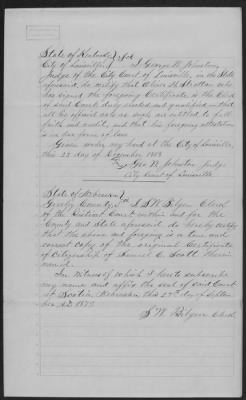 State of Kentucky } Sct
City of Louisville } I George W. Johnston
Judge of the City Court of Louisville, in the State
aforesaid, do certify that Oliver H. Stratton who
has signed the foregoing Certificate is the Clerk
of said Court duly elected and qualified and that
all his official acts as such are entitled to full
faith and credit, and that his foregoing attestation
is in due form of law.
Given under my hand at the City of Louisville,
this 23 day of December 1863.
Geo. W. Johnston Judge
City Court of Louisville
State of Nebraska }
County I S. W.
of the District Court within and for the
County and State aforesaid do hereby certify
that the above and foregoing is a true and
correct copy of the original Certificate
of Citizenship of Scott therein
named.
In Witness Which I hereto subscribe
my name and affix the seal of said Court
at Nebraska this 27th day of Septem
ber A.D. 1879
S. W. Clerk